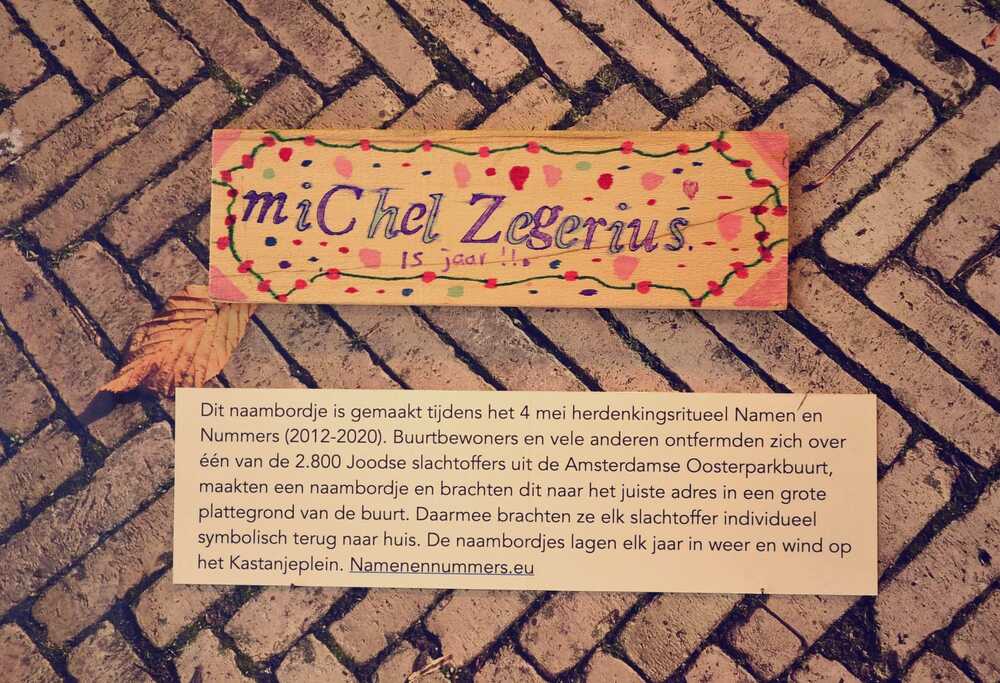 miChel Zegerius.
15 jaar !!.
Dit naambordje is gemaakt tijdens het 4 mei herdenkingsritueel Namen en
Nummers (2012-2020). Buurtbewoners en vele anderen ontfermden zich over
één van de 2.800 Joodse slachtoffers uit de Amsterdamse Oosterparkbuurt,
maakten een naambordje en brachten dit naar het juiste adres in een grote
plattegrond van de buurt. Daarmee brachten ze elk slachtoffer individueel
symbolisch terug naar huis. De naambordjes lagen elk jaar in weer en wind op
het Kastanjeplein. Namenennummers.eu